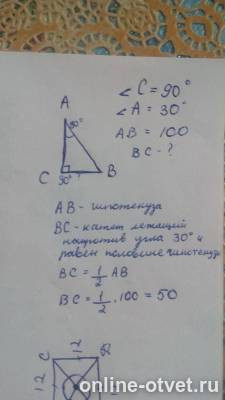 ∠C = 90°
∠A = 30°
AB = 100
BC - ?
A
30°
C
90°
B
AB - гипотенуза
BC - катет лежащий
напротив угла 30° и
равен половине гипотенузы
BC = 1/2 AB
BC = 1/2 · 100 = 50
C
12
12
online-otvet.ru